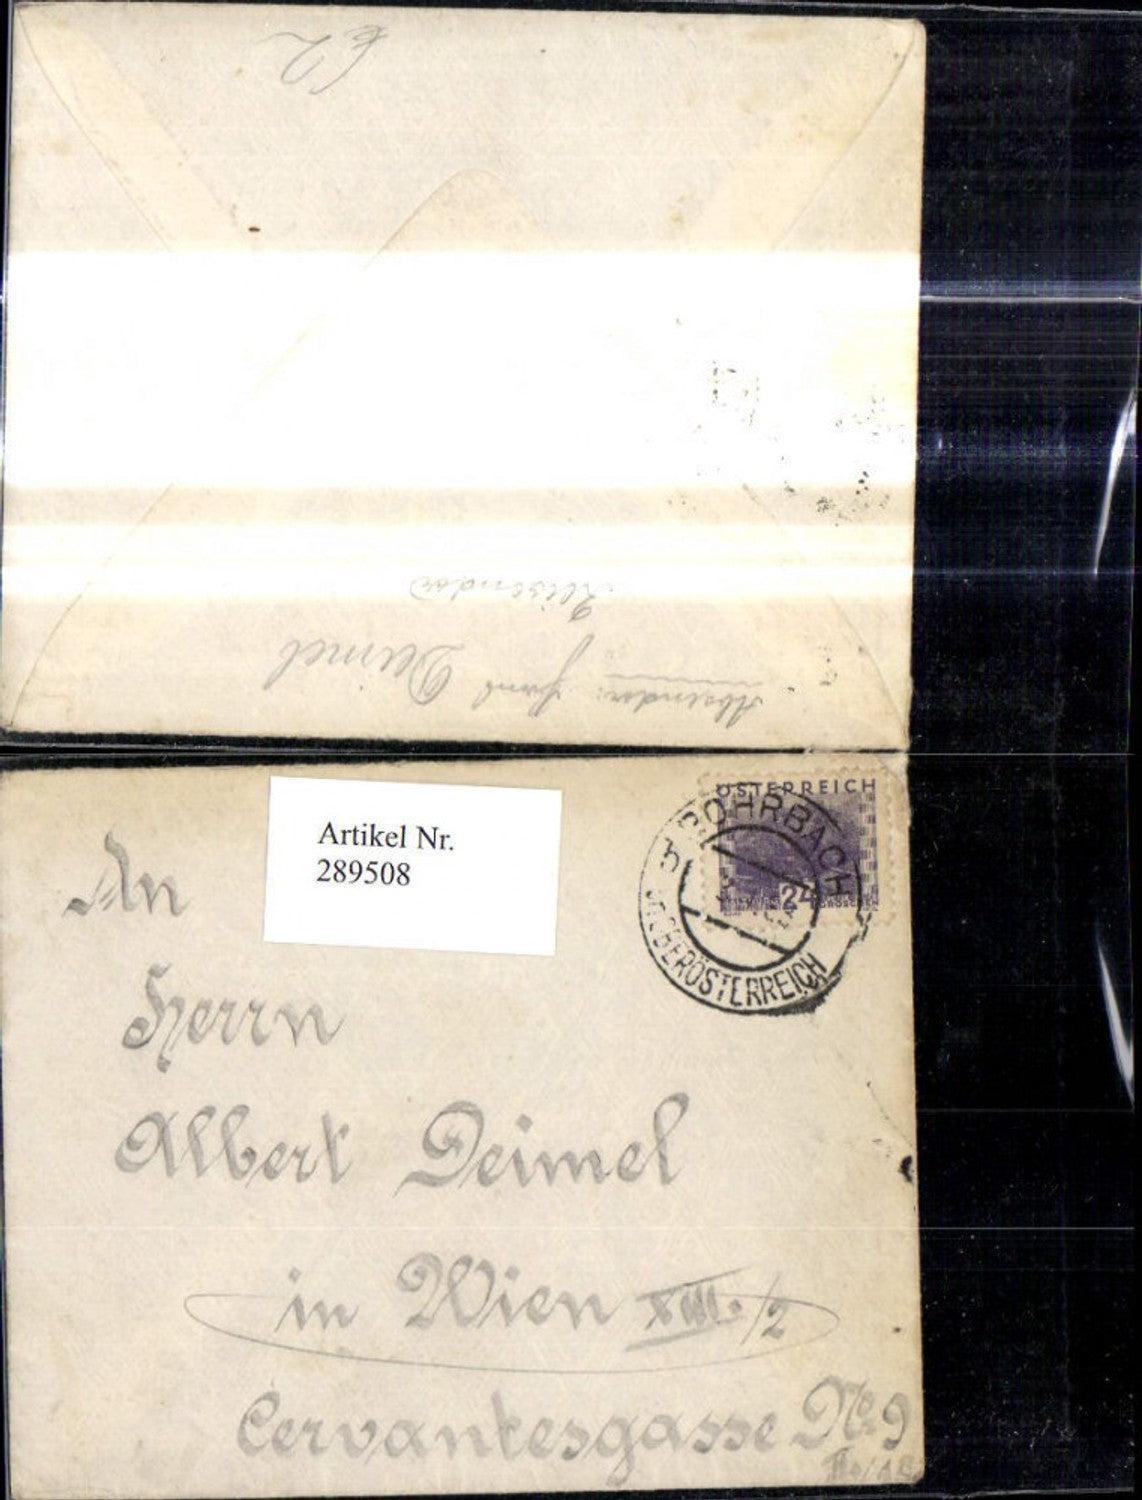 € 2
Absender: Deimel
Artikel Nr.
289508
ÖSTERREICH
24
GROSCHEN
ROHRBACH
OBERÖSTERREICH
An
Herrn
Albert Deimel
in Wien XIII./2
Cervantesgasse No 9